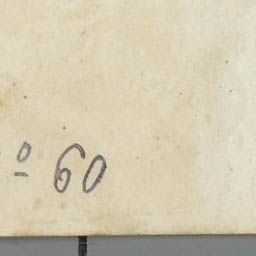 º 60